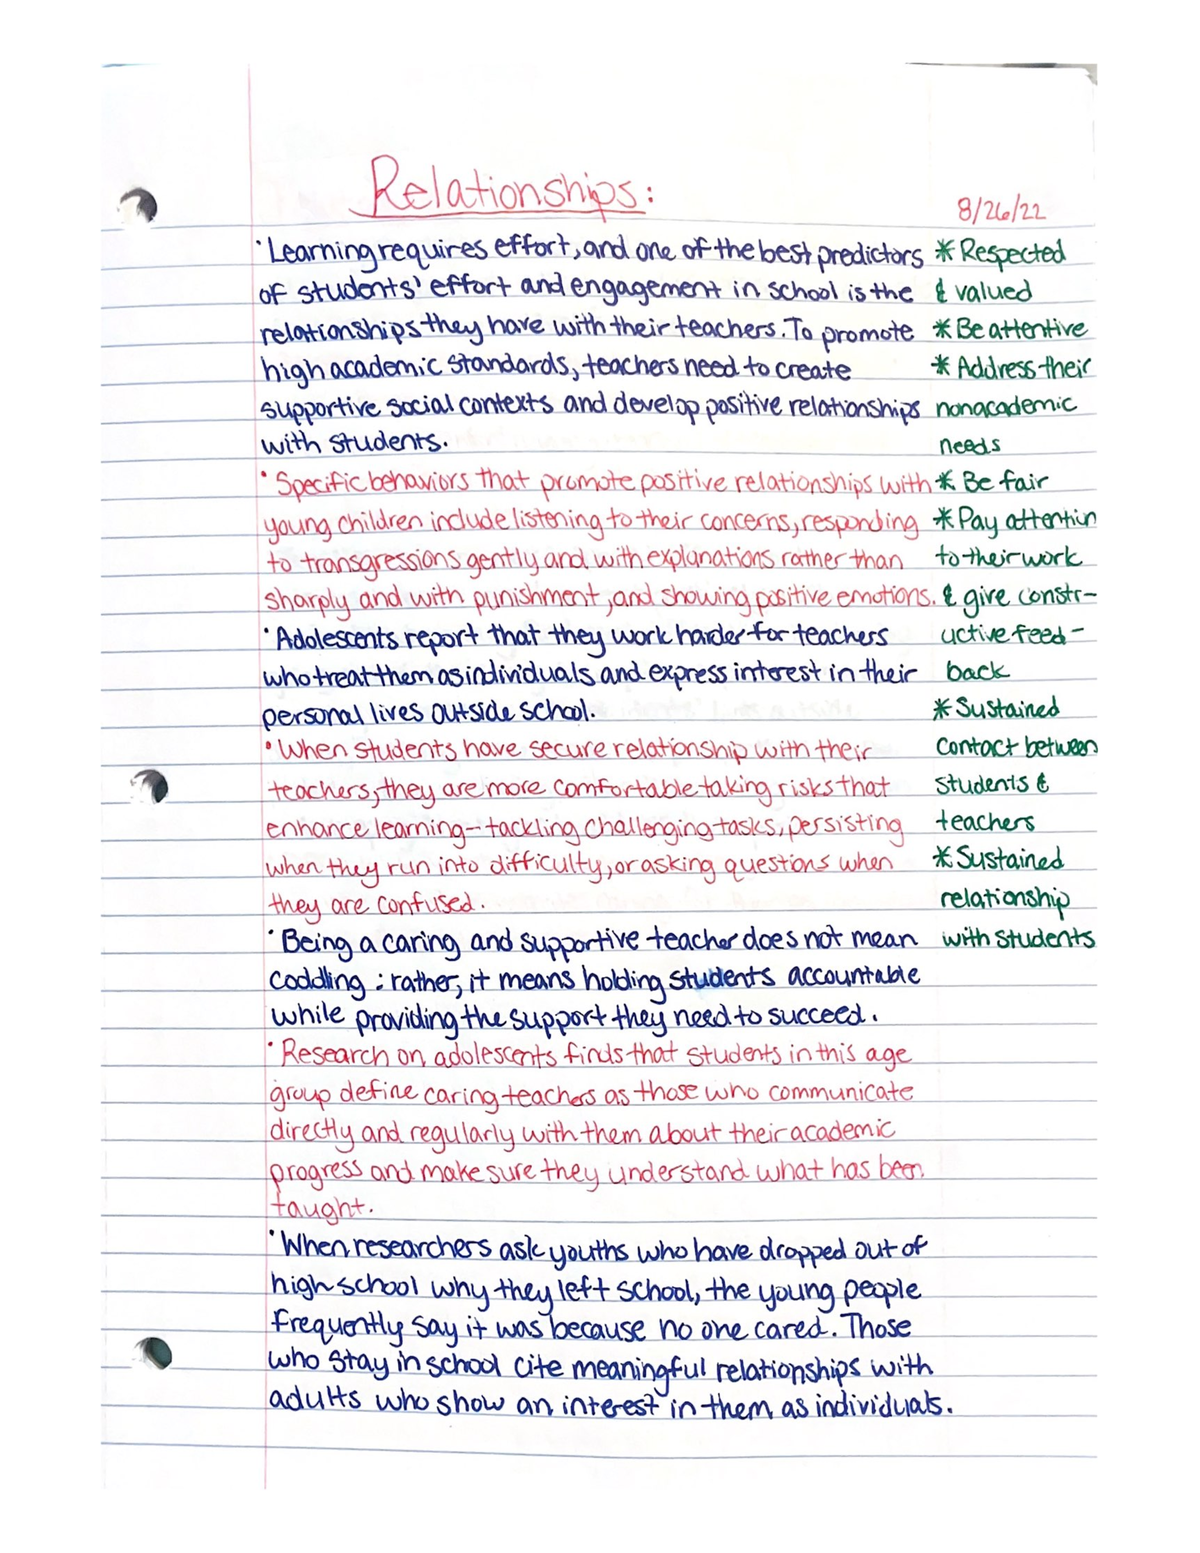 Relationships:
8/26/22
·Learning requires effort, and one of the best predictors
of students' effort and engagement in school is the
relationships they have with their teachers. To promote
high academic standards, teachers need to create
supportive social contexts and develop positive relationships
with students.
·Specific behaviors that promote positive relationships with
young children include listening to their concerns, responding
to transgressions gently and with explanations rather than
sharply and with punishment, and showing positive emotions.
·Adolescents report that they work harder for teachers
who treat them as individuals and express interest in their
personal lives outside school.
·When students have secure relationship with their
teachers, they are more comfortable taking risks that
enhance learning-tackling challenging tasks, persisting
when they run into difficulty, or asking questions when
they are confused.
·Being a caring and supportive teacher does not mean
coddling; rather, it means holding students accountable
while providing the support they need to succeed.
·Research on adolescents finds that students in this age
group define caring teachers as those who communicate
directly and regularly with them about their academic
progress and make sure they understand what has been
taught.
·When researchers ask youths who have dropped out of
high school why they left school, the young people
frequently say it was because no one cared. Those
who stay in school cite meaningful relationships with
adults who show an interest in them as individuals.
* Respected
& valued
* Be attentive
* Address their
nonacademic
needs
* Be fair
* Pay attention
to their work
& give constr-
uctive feed-
back
* Sustained
contact between
students &
teachers
* Sustained
relationship
with students